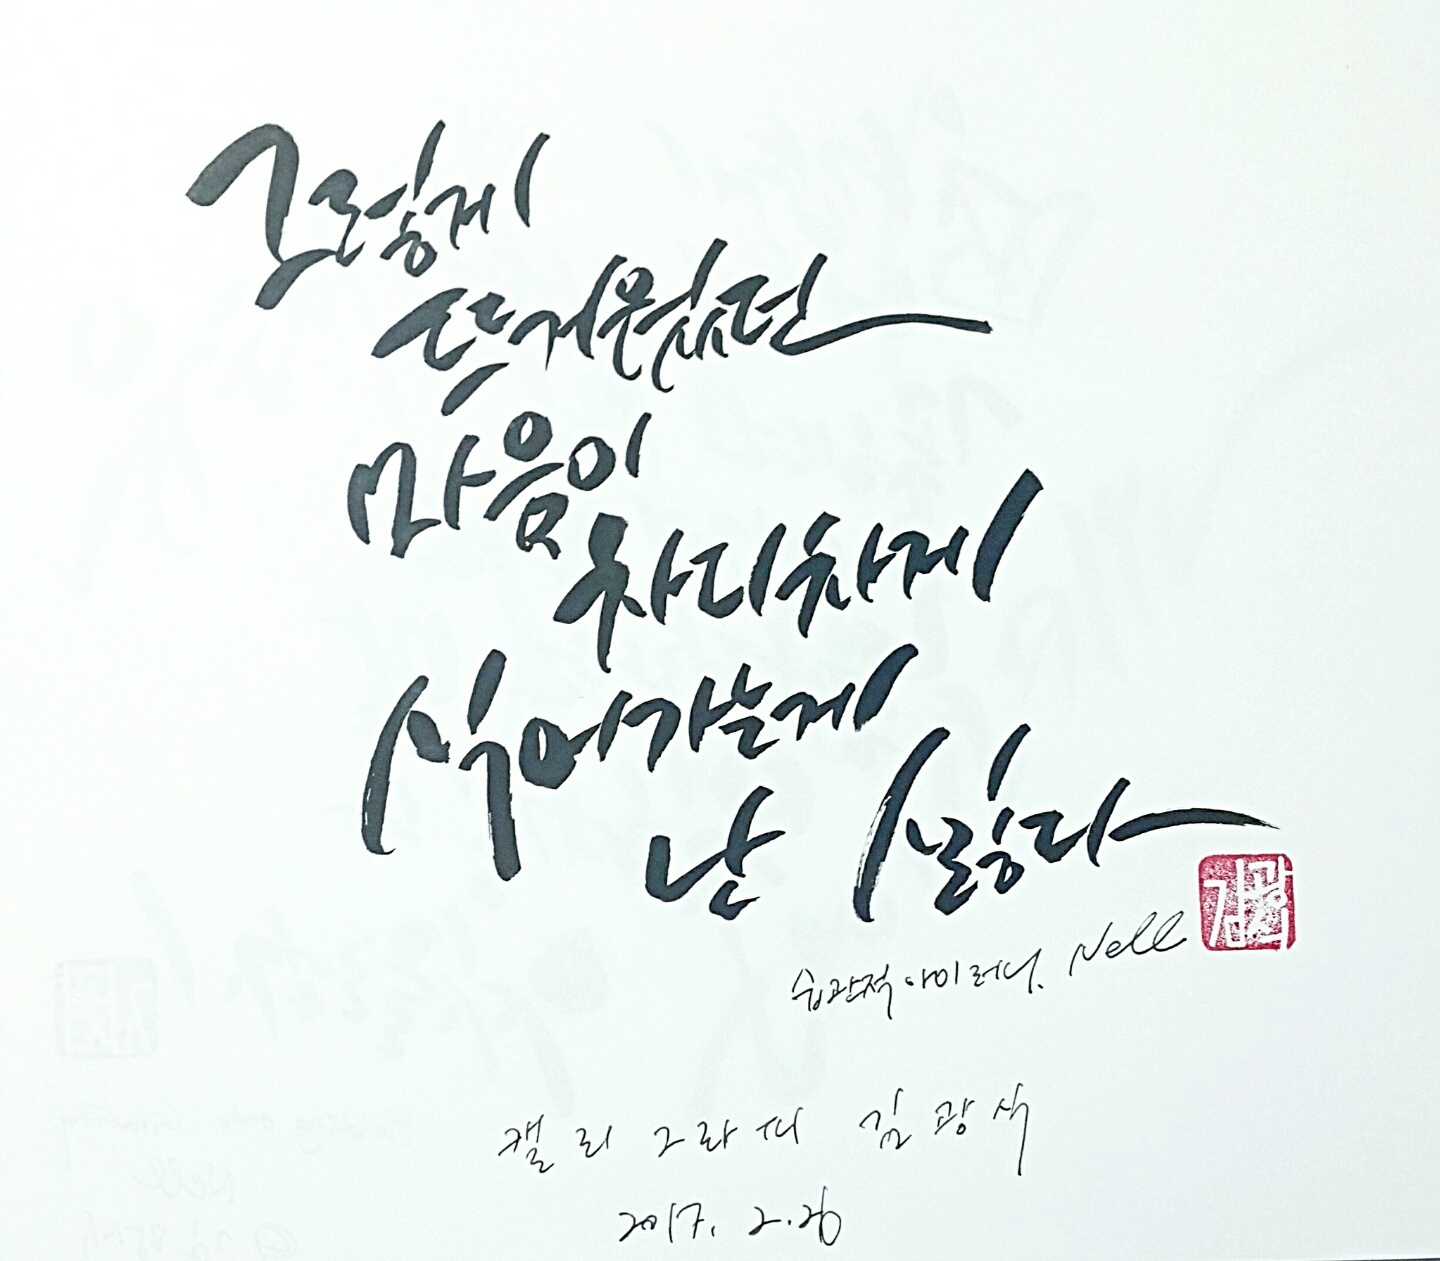 그렇게
뜨거웠던
마음이
차디차게
식어가는게
난 싫다
습관적 아이러니. Nell
캘리그라피 김광석
2017. 2. 26